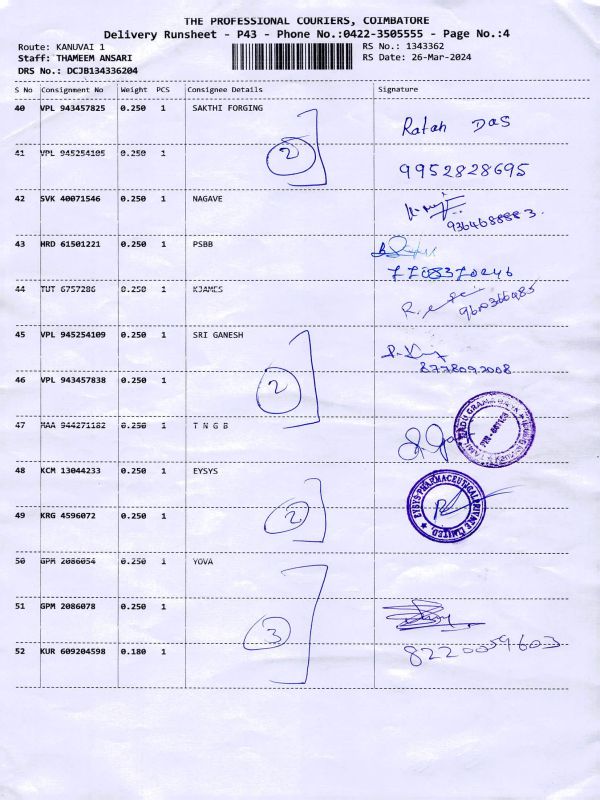 THE PROFESSIONAL COURIERS, COIMBATORE
Delivery Runsheet - P43 - Phone No.:0422-3505555 - Page No.:4
Route: KANUVAI 1 RS No.: 1343362
Staff: THAMEEM ANSARI RS Date: 26-Mar-2024
DRS No.: DCJB134336204
S No Consignment No Weight PCS Consignee Details Signature
40 VPL 943457825 0.250 1 SAKTHI FORGING
Ratan Das
41 VPL 945254105 0.250 1 2
9952828695
42 SVK 40071546 0.250 1 NAGAVE
43 HRD 61501221 0.250 1 PSBB
44 TUT 6757286 0.250 1 KJAMES
45 VPL 945254109 0.250 1 SRI GANESH
8778092008
46 VPL 943457838 0.250 1 2
47 MAA 944271182 0.250 1 T N G B
48 KCM 13044233 0.250 1 EYSYS
EYSYS PHARMACEUTICAL PRIVATE LIMITED.
49 KRG 4596072 0.250 1 2
50 GPM 2086054 0.250 1 YOVA
51 GPM 2086078 0.250 1 3
52 KUR 609204598 0.180 1
8220059603